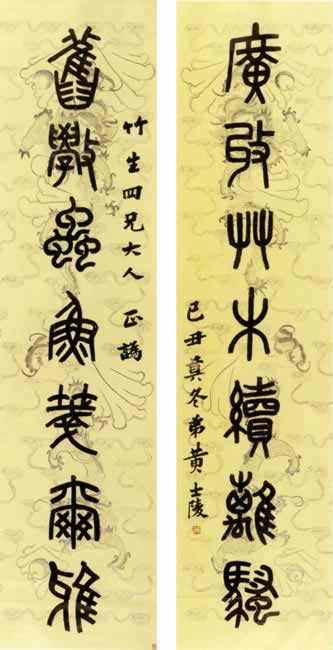 廣艸木續離騷
己丑冬弟黃士陵
竹生四兄大人 正譌
舊斆蟲魚箋爾雅